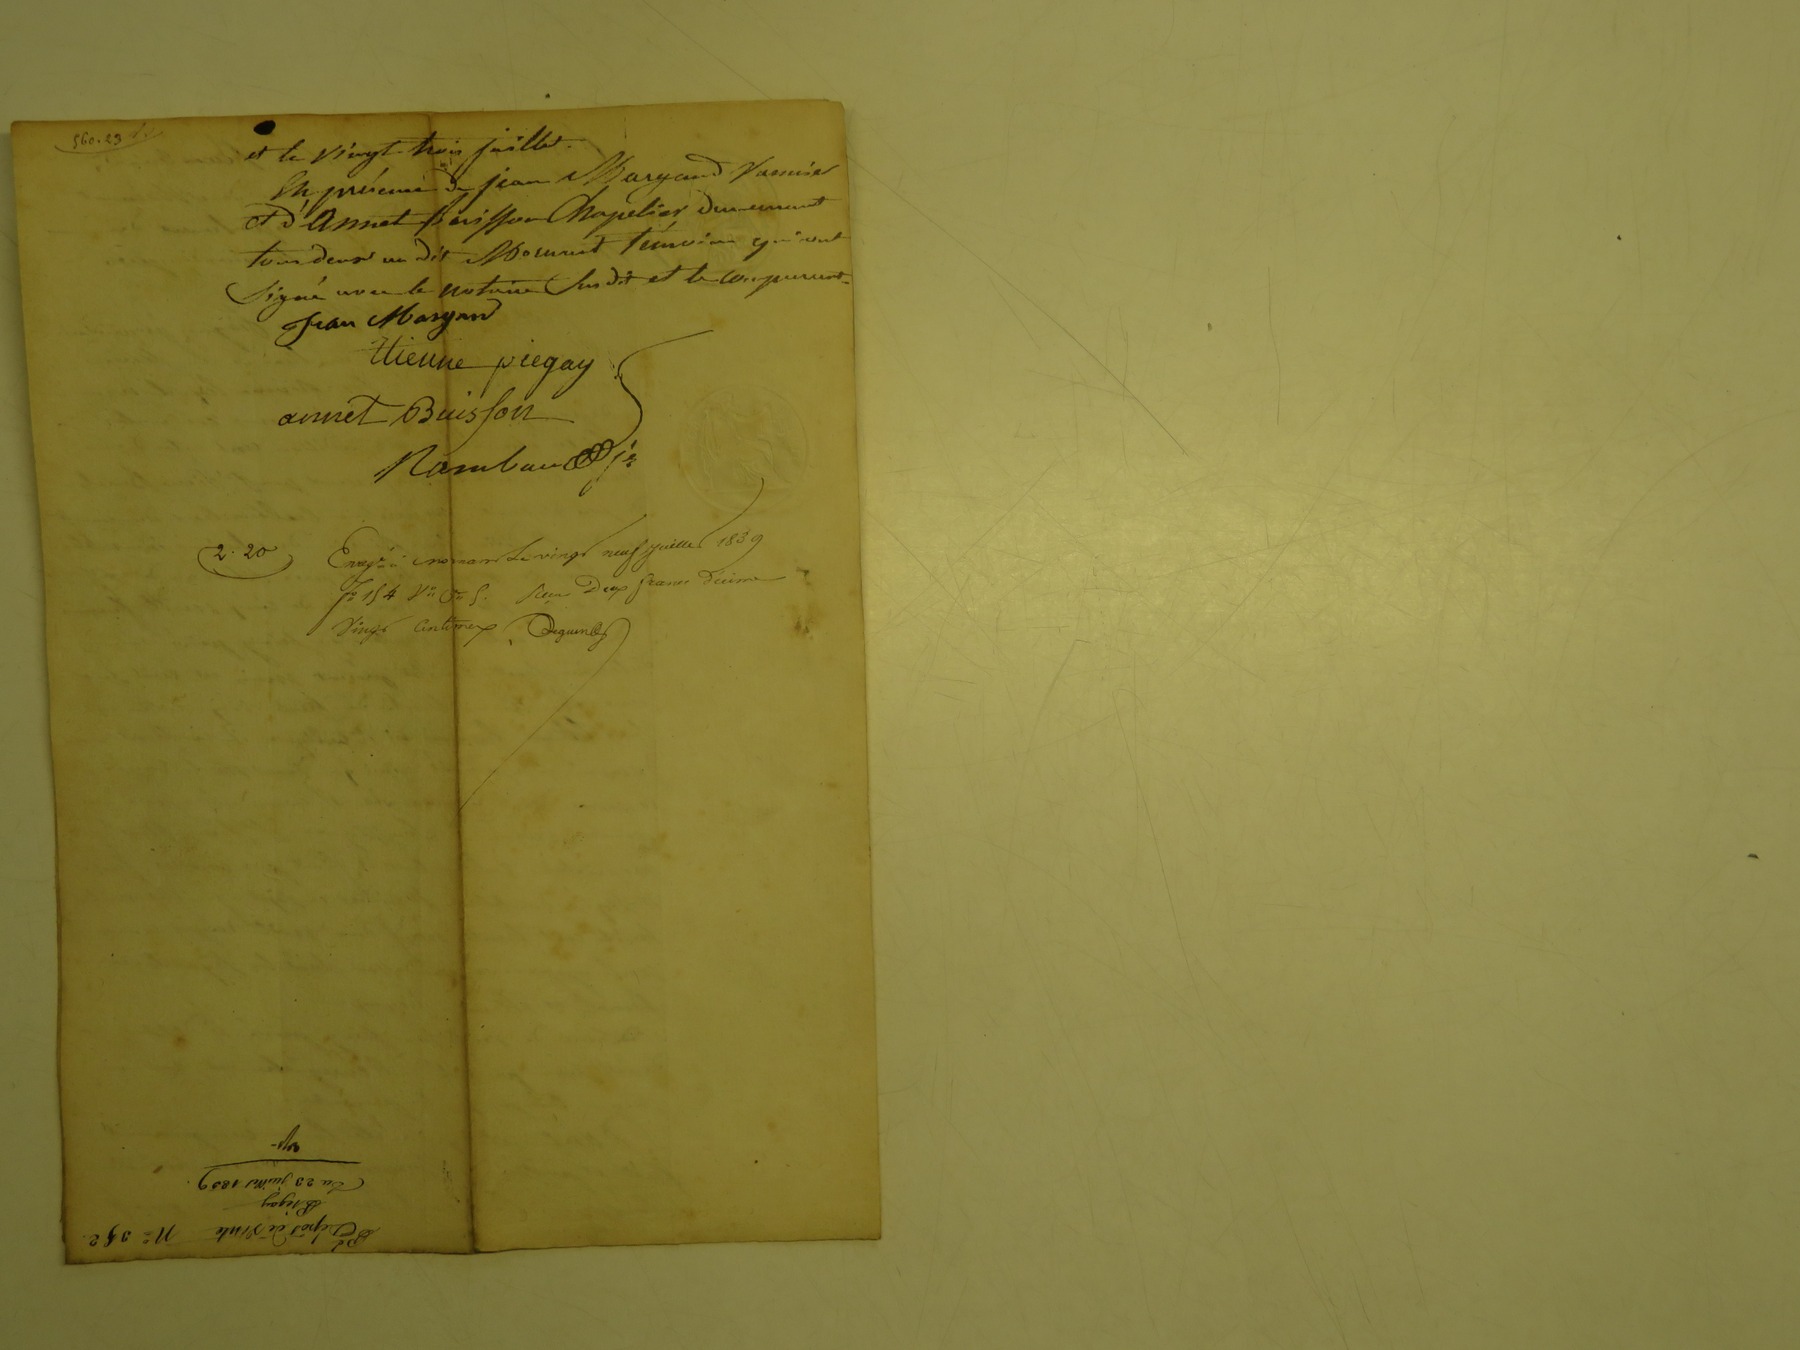 560.23
et le vingt trois juillet.
En présence de jean Margand
et d'Annet Buisson Chapelier demeurant
tous deux au dit Mornant témoins qui ont
signé avec le notaire susdit et le comparant
Jean Margand
Etienne piegay
annet Buisson
Rambaud
2. 20 Enregré à mornant Le vingt neuf juillet 1839
fo 154 Vo Ce 5. Reçu Deux francs décime
Vingt centimes
No 392
Dépôt de
Piégay
Du 23 juillet 1839